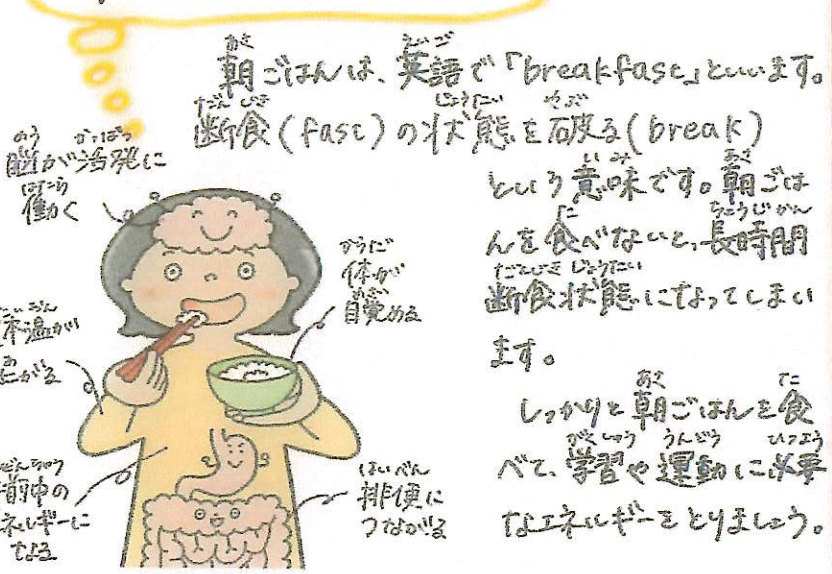 朝ごはんは、英語で「breakfast」といいます。
断食(fast)の状態を破る(break)
という意味です。朝ごは
んを食べないと、長時間
断食状態になってしまい
ます。
しっかりと朝ごはんを食
べて、学習や運動に必要
なエネルギーをとりましょう。
脳が活発に
働く
体が
目覚める
体温が
上がる
午前中の
エネルギーに
なる
排便に
つながる